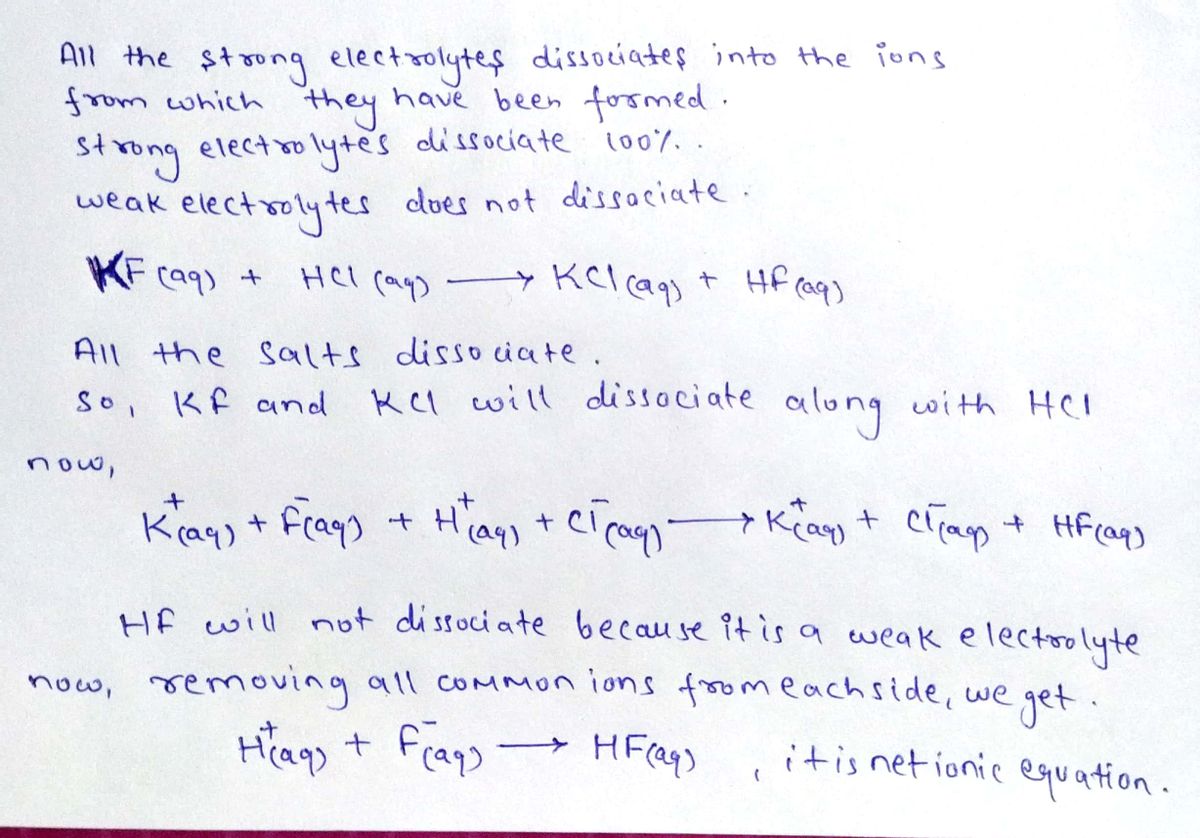 All the strong electrolytes dissociates into the ions
from which they have been formed.
strong electrolytes dissociate 100%..
weak electrolytes does not dissociate.
KF(aq) + HCl(aq) ⟶ KCl(aq) + Hf(aq)
All the salts dissociate.
so, Kf and KCl will dissociate along with HCl
now,
K⁺(aq) + F⁻(aq) + H⁺(aq) + Cl⁻(aq) ⟶ K⁺(aq) + Cl⁻(aq) + HF(aq)
Hf will not dissociate because it is a weak electrolyte
now, removing all common ions from each side, we get.
H⁺(aq) + F⁻(aq) ⟶ HF(aq) , it is net ionic equation.